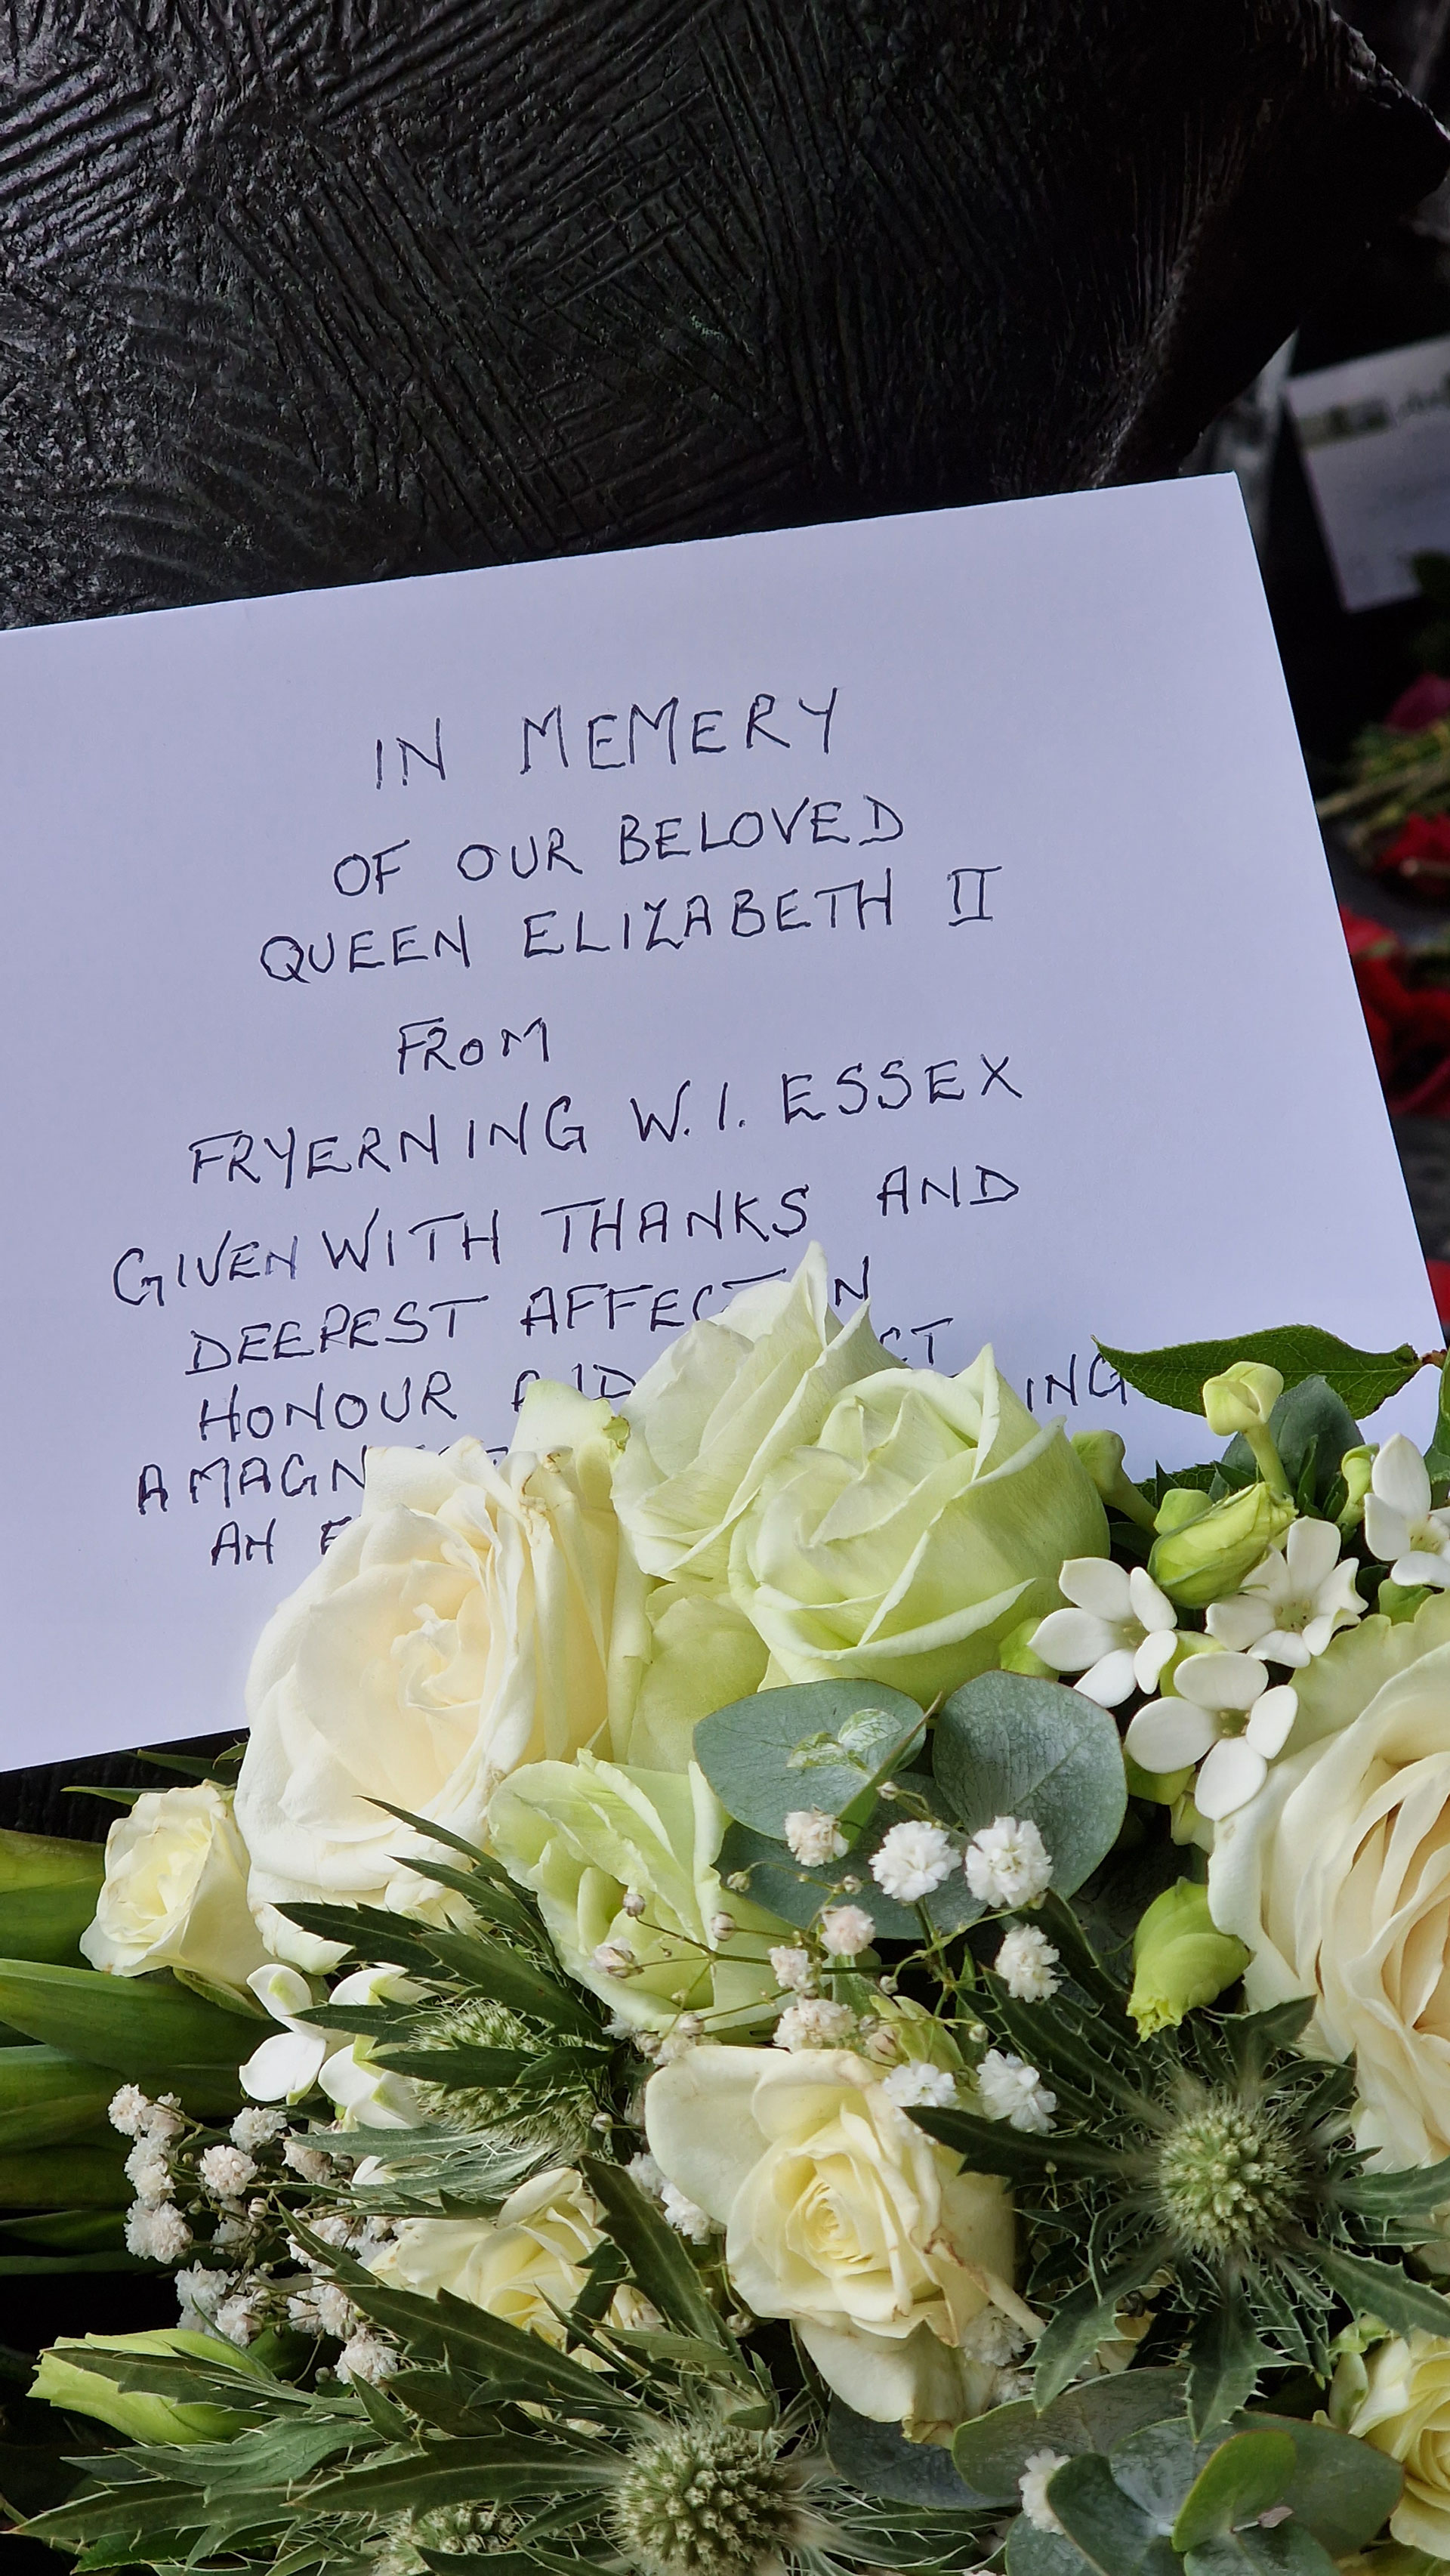 IN MEMERY
OF OUR BELOVED
QUEEN ELIZABETH II
FROM
FRYERNING W.I. ESSEX
GIVEN WITH THANKS AND
DEEPEST
HONOUR
A
AN